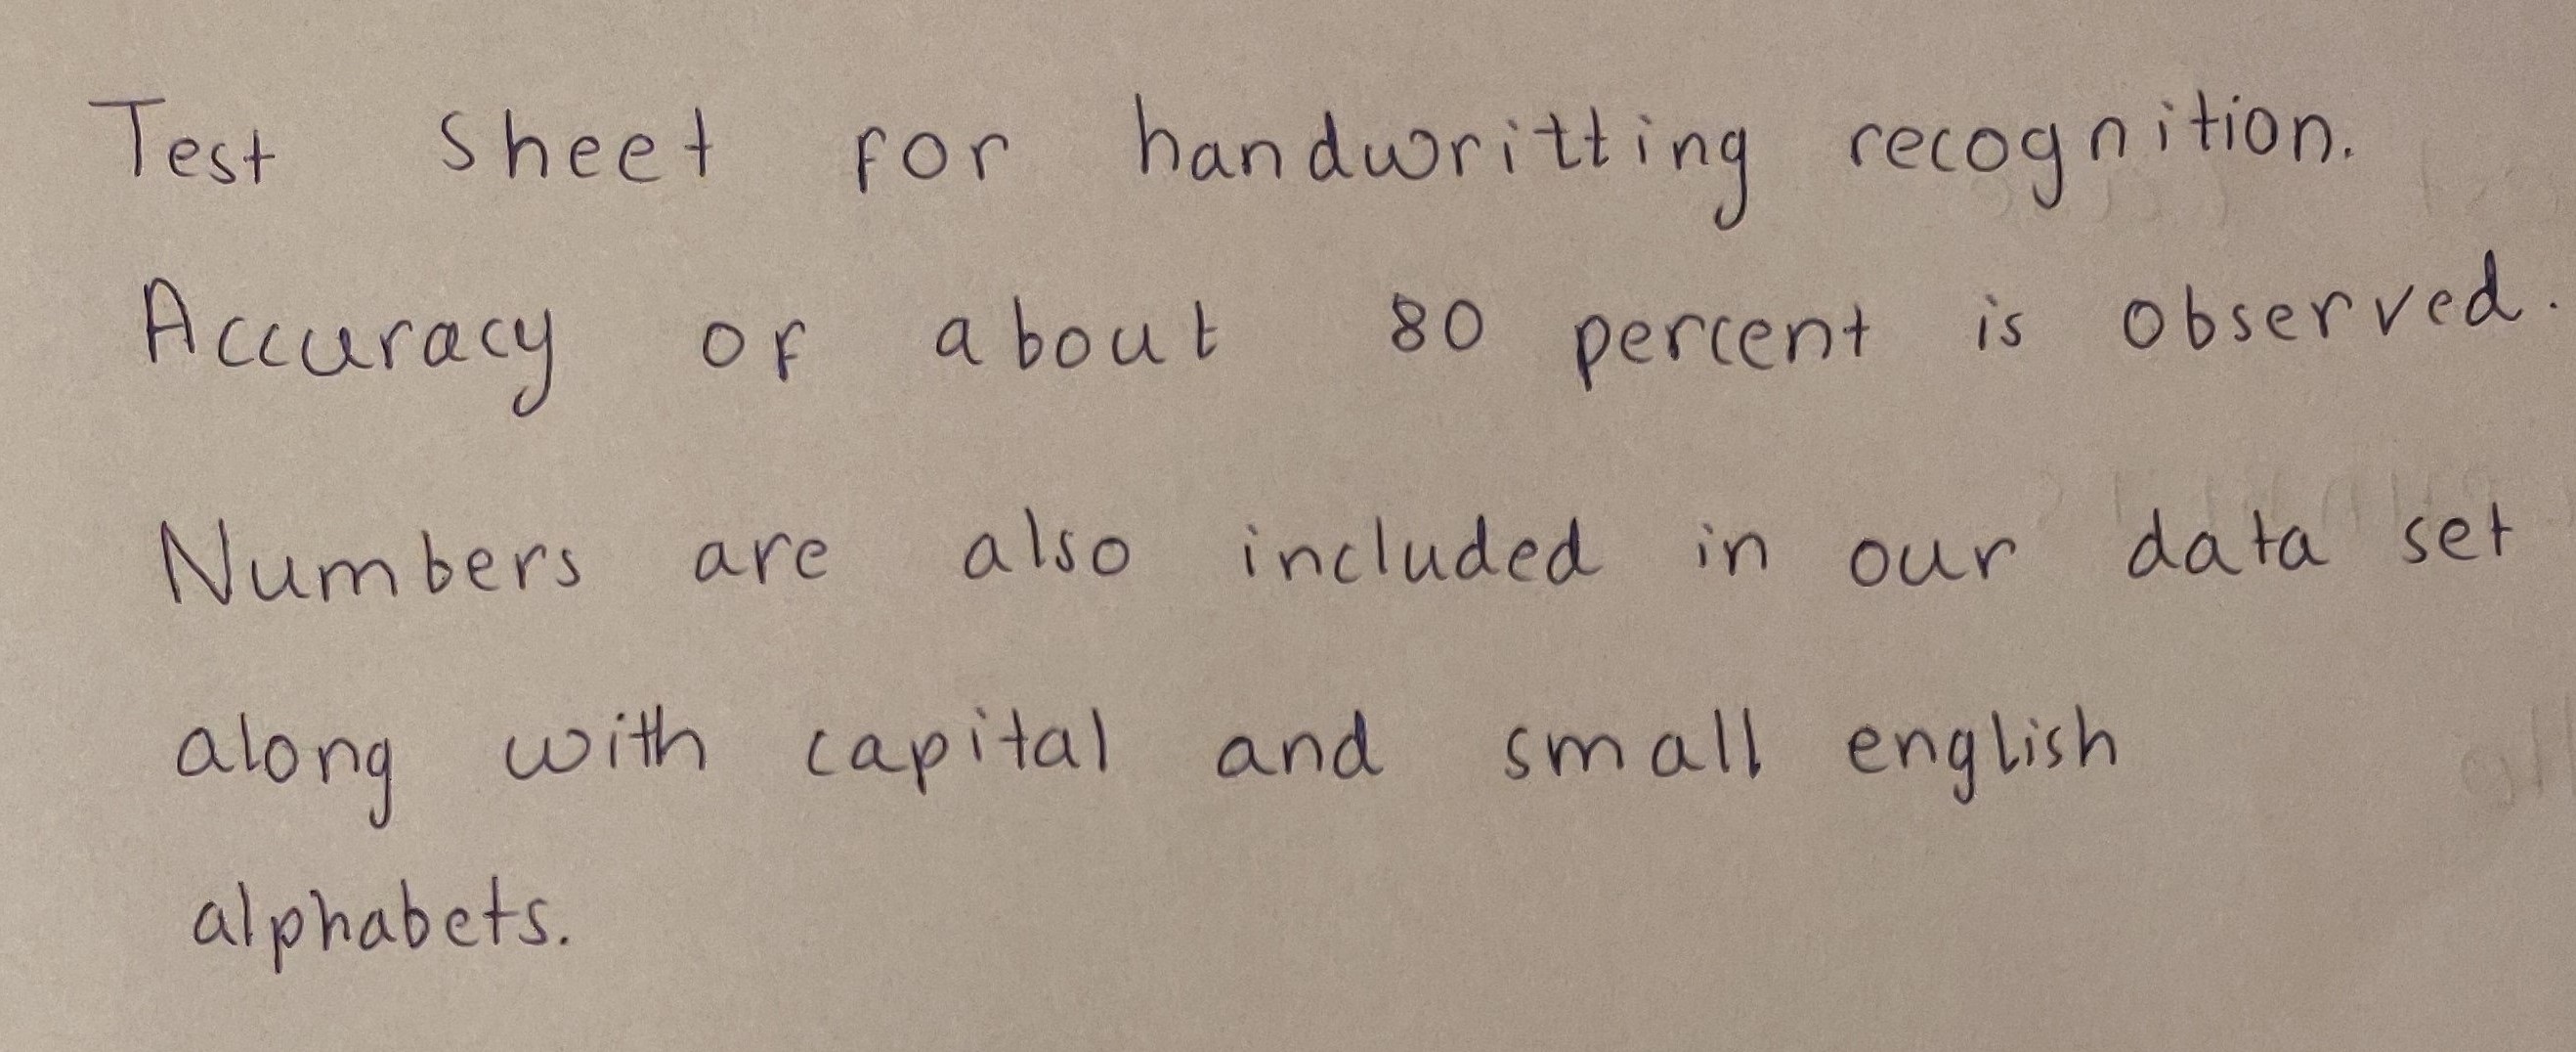 Test sheet for handwritting recognition.
Accuracy of about 80 percent is observed.
Numbers are also included in our data set
along with capital and small english
alphabets.